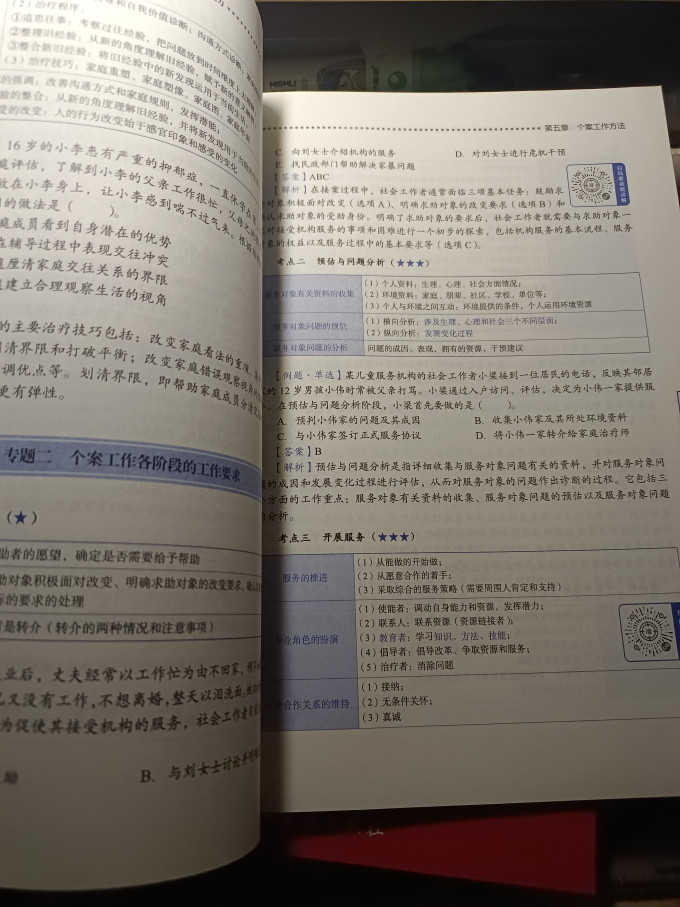 （2）治疗程序：
①追思往事：考察过往经验，把问题放到时间维度上
②整理旧经验：从新的角度理解旧经验，赋予新的意义
③整合新旧经验：将旧经验中的新发现运用于当前生活
（3）治疗技巧：家庭重塑、家庭图、家庭
的强调：改善沟通方式和家庭规则，发挥潜能；
验的整合：从新的角度理解旧经验，并将新发现用于
受的改变：人的行为改变始于感官印象和感受的变化
16 岁的小李患有严重的抑郁症，一直休学在
庭评估，了解到小李的父亲工作很忙，父母之
放在小李身上，让小李感到喘不过气来。根据
的做法是（　　）。
庭成员看到自身潜在的优势
在辅导过程中表现交往冲突
庭厘清家庭交往关系的界限
建立合理观察生活的视角
的主要治疗技巧包括：改变家庭看法的重演、
划清界限和打破平衡；改变家庭错误观察视角
强调优点等。划清界限，即帮助家庭成员分清
更有弹性。
专题二　个案工作各阶段的工作要求
（★）
助者的愿望，确定是否需要给予帮助
助对象积极面对改变、明确求助对象的改变要求、
际的要求的处理
者是转介（转介的两种情况和注意事项）
业后，丈夫经常以工作忙为由不回家，
又没有工作，不想离婚，整天以泪洗面，
为促使其接受机构的服务，社会工作者
励
B. 与刘女士讨论并
第五章　个案工作方法
C. 向刘女士介绍机构的服务
D. 对刘女士进行危机干预
E. 找民政部门帮助解决家暴问题
【答案】ABC
【解析】在接案过程中，社会工作者通常面临三项基本任务：鼓励求
对象积极面对改变（选项 A）、明确求助对象的改变要求（选项 B）和
认求助对象的受助身份。明确了求助对象的要求后，社会工作者就需要与求助对象一
对接受机构服务的事项和困难进行一个初步的探索，包括机构服务的基本流程、服务
象的权益以及服务过程中的基本要求等（选项 C）。
考点二　预估与问题分析（★★★）
服务对象有关资料的收集
（1）个人资料：生理、心理、社会方面情况；
（2）环境资料：家庭、朋辈、社区、学校、单位等；
（3）个人与环境之间互动：环境提供的条件、个人运用环境资源
服务对象问题的预估
（1）横向分析：涉及生理、心理和社会三个不同层面；
（2）纵向分析：发展变化过程
服务对象问题的分析
问题的成因、表现，拥有的资源，干预建议
【例题·单选】某儿童服务机构的社会工作者小梁接到一位居民的电话，反映其邻居
的 12 岁男孩小伟时常被父亲打骂。小梁通过入户访问、评估，决定为小伟一家提供服
。在预估与问题分析阶段，小梁首先要做的是（　　）。
A. 预判小伟家的问题及其成因
B. 收集小伟家及其所处环境资料
C. 与小伟家签订正式服务协议
D. 将小伟一家转介给家庭治疗师
【答案】B
【解析】预估与问题分析是指详细收集与服务对象问题有关的资料，并对服务对象问
的成因和发展变化过程进行评估，从而对服务对象的问题作出诊断的过程。它包括三
方面的工作重点：服务对象有关资料的收集、服务对象问题的预估以及服务对象问题
分析。
考点三　开展服务（★★★）
服务的推进
（1）从能做的开始做；
（2）从愿意合作的着手；
（3）采取综合的服务策略（需要周围人肯定和支持）
专业角色的扮演
（1）使能者：调动自身能力和资源、发挥潜力；
（2）联系人：联系资源（资源链接者）；
（3）教育者：学习知识、方法、技能；
（4）倡导者：倡导改革、争取资源和服务；
（5）治疗者：消除问题
合作关系的维持
（1）接纳；
（2）无条件关怀；
（3）真诚